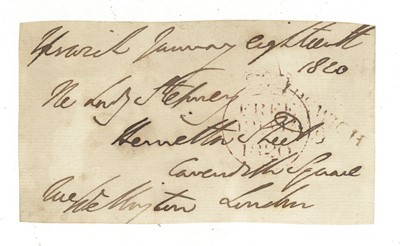 Ipswich January eighteenth
1820
The Lady Stepney
Henrietta Street
Cavendish Square
London
Wellington
FREE
1820
IPSWICH